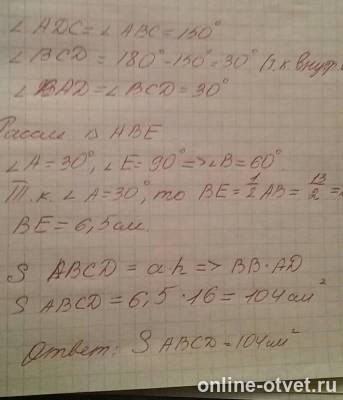 ∠ADC = ∠ABC = 150°
∠BCD = 180° - 150° = 30° (т.к. внутр.
∠BAD = ∠BCD = 30°
Рассм △ ABE
∠A = 30°, ∠E = 90° => ∠B = 60°.
Т.к. ∠A = 30°, то BE = 1/2 AB = 13/2 =
BE = 6,5 см.
S ABCD = a·h => BB·AD
S ABCD = 6,5 · 16 = 104 см²
Ответ: S ABCD = 104 см²
online-otvet.ru